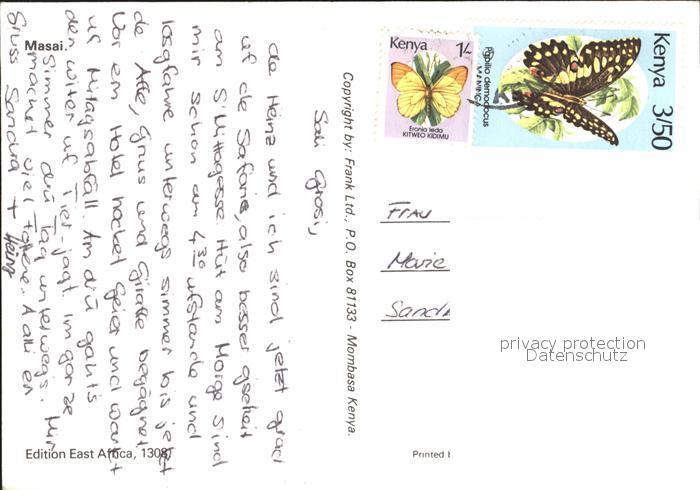 Masai.
Sali Grosi,
de Heinz und ich sind jetzt grad
uf de Safarie, also besser gseit
am S'Mittagesse. Hüt am Morge sind
mir schon am 4³⁰ ufstande und
losgfahre unterwegs simmer bis jetzt
de Affe, Gnus und Giraffe begägnet.
Vor em Hotel hocket Geier und wartet
uf Mitagsabfäll. Am drü gahts
den witer uf Tier-jagt. Im ganze
Simmer drü Täg unterwegs. Mir
machet viel Fotene. A alli en
Gruss Sandra + Heinz
Edition East Africa, 1308
Copyright by: Frank Ltd., P.O. Box 81133 - Mombasa Kenya.
Kenya 1/-
Eronia leda
KITWEO KIDIMU
Kenya 3/50
Papilio demodocus
Frau
Marie
Printed b
privacy protection
Datenschutz